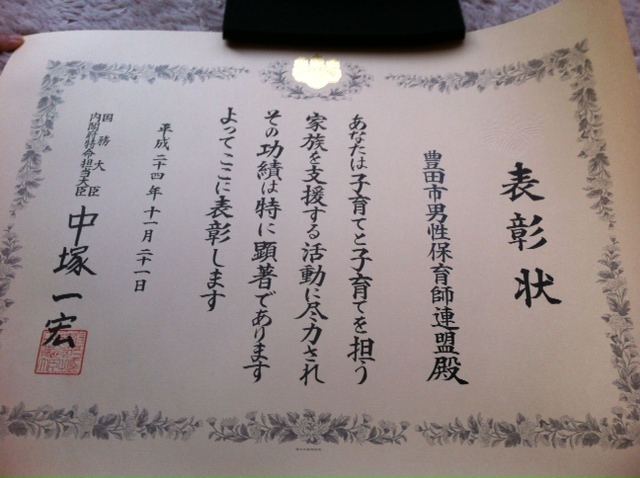 表彰状
豊田市男性保育師連盟殿
あなたは子育てと子育てを担う
家族を支援する活動に尽力され
その功績は特に顕著であります
よってここに表彰します
平成二十四年十一月二十一日
国務大臣
内閣府特命担当大臣
中塚一宏